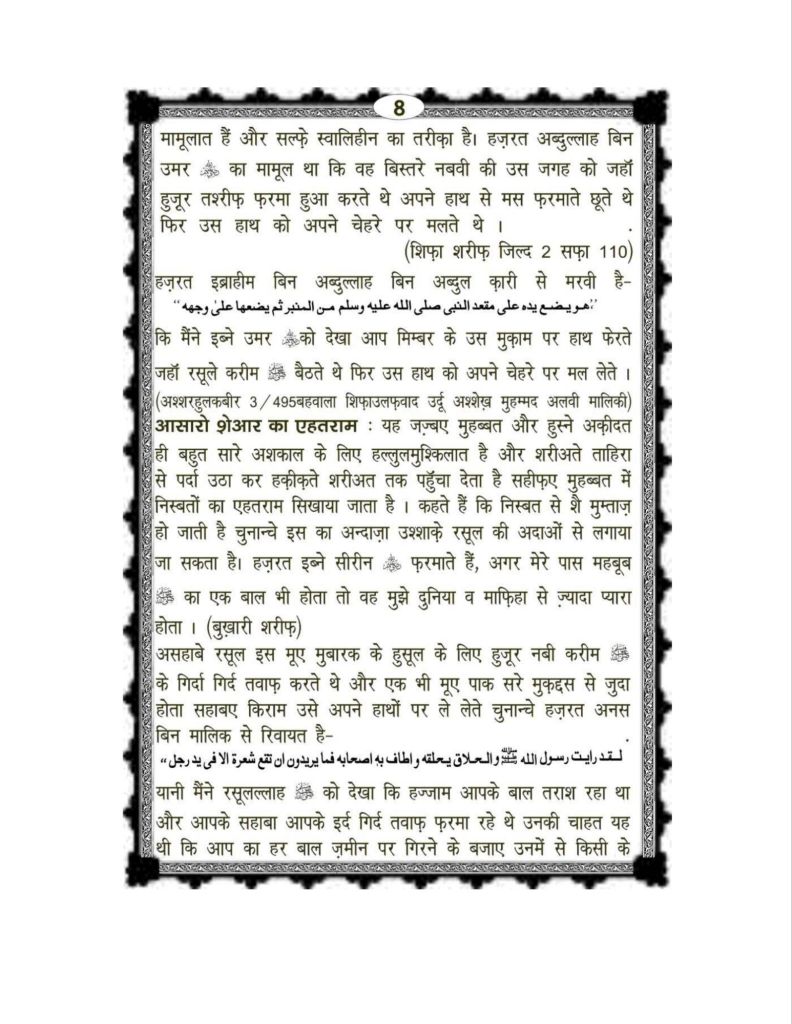 8
मामूलात हैं और सल्फे़ स्वालिहीन का तरीक़ा है। हज़रत अब्दुल्लाह बिन
उमर ؓ का मामूल था कि वह बिस्तरे नबवी की उस जगह को जहाँ
हुजूर तश्रीफ़ फ़रमा हुआ करते थे अपने हाथ से मस फ़रमाते छूते थे
फिर उस हाथ को अपने चेहरे पर मलते थे ।
(शिफ़ा शरीफ़ जिल्द 2 सफ़ा 110)
हज़रत इब्राहीम बिन अब्दुल्लाह बिन अब्दुल क़ारी से मरवी है–
”هو يضع يده على مقعد النبى صلى الله عليه وسلم من المنبر ثم يضعها على وجهه“
कि मैंने इब्ने उमर ؓको देखा आप मिम्बर के उस मुक़ाम पर हाथ फेरते
जहाँ रसूले करीम ﷺ बैठते थे फिर उस हाथ को अपने चेहरे पर मल लेते ।
(अश्शरहुलकबीर 3/495बहवाला शिफ़ाउलफवाद उर्दू अश्शेख़ मुहम्मद अलवी मालिकी)
आसारो शे़आर का एहतराम : यह जज़्बए मुहब्बत और हुस्ने अक़ीदत
ही बहुत सारे अशकाल के लिए हल्लुलमुश्किलात है और शरीअते ताहिरा
से पर्दा उठा कर हक़ीक़ते शरीअत तक पहुँचा देता है सहीफ़ए मुहब्बत में
निस्बतों का एहतराम सिखाया जाता है । कहते हैं कि निस्बत से शै मुम्ताज़
हो जाती है चुनान्चे इस का अन्दाज़ा उश्शाक़े रसूल की अदाओं से लगाया
जा सकता है। हज़रत इब्ने सीरीन ؓ फ़रमाते हैं, अगर मेरे पास महबूब
ﷺ का एक बाल भी होता तो वह मुझे दुनिया व माफ़िहा से ज़्यादा प्यारा
होता । (बुख़ारी शरीफ़)
असहाबे रसूल इस मूए मुबारक के हुसूल के लिए हुजूर नबी करीम ﷺ
के गिर्दा गिर्द तवाफ़ करते थे और एक भी मूए पाक सरे मुक़द्दस से जुदा
होता सहाबए किराम उसे अपने हाथों पर ले लेते चुनान्चे हज़रत अनस
बिन मालिक से रिवायत है–
لقد رايت رسول الله ﷺ والحلاق يحلقه و اطاف به اصحابه فما يريدون ان تقع شعرة الا فى يد رجل“
यानी मैंने रसूलल्लाह ﷺ को देखा कि हज्जाम आपके बाल तराश रहा था
और आपके सहाबा आपके इर्द गिर्द तवाफ़ फ़रमा रहे थे उनकी चाहत यह
थी कि आप का हर बाल ज़मीन पर गिरने के बजाए उनमें से किसी के